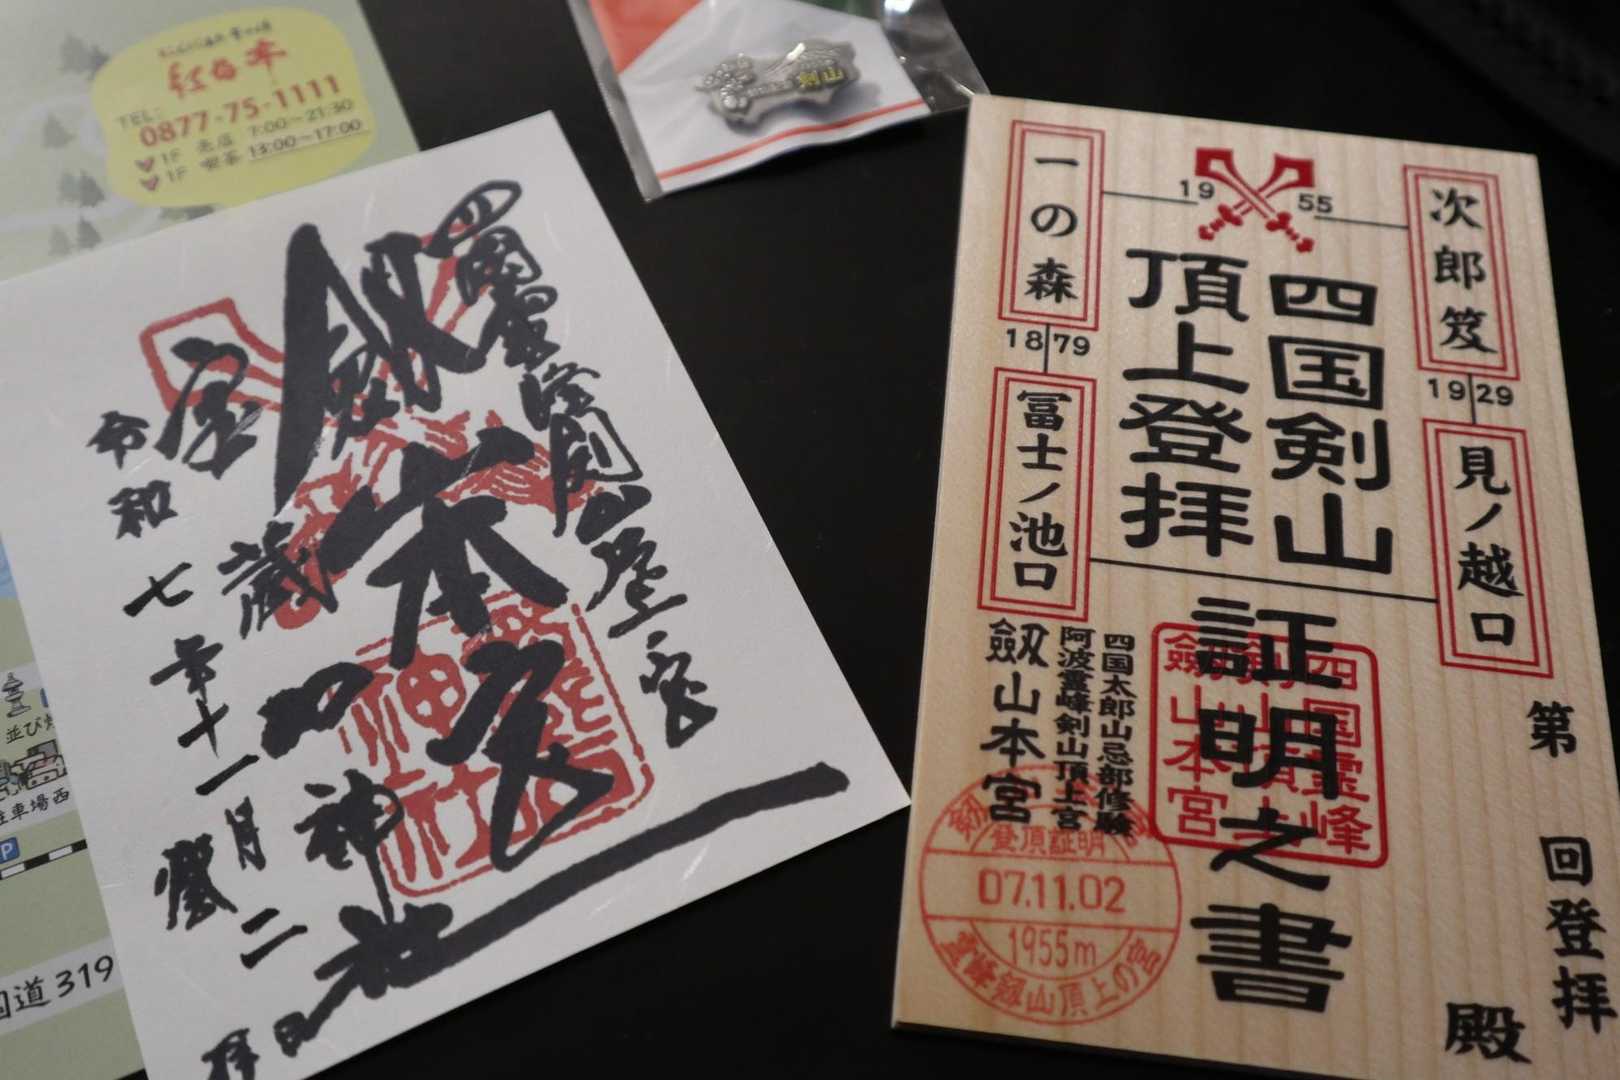 TEL:
0877-75-1111
1F 売店 7:00〜21:30
1F 喫茶 13:00〜17:00
並び
駐車場西
P
国道319
四国霊峰剣山登宮
劔山本宮
宝蔵神社
令和七年十一月二
登拝
剣山
19 55
次郎笈
19 29
見ノ越口
一の森
18 79
冨士ノ池口
四国剣山
頂上登拝
証明之書
四国霊峰
剣山頂上
劔山本宮
四国太郎山忌部修験
阿波霊峰剣山頂上宮
劔山本宮
登頂証明
07.11.02
1955m
霊峰劔山頂上の宮
第 回登拝
殿